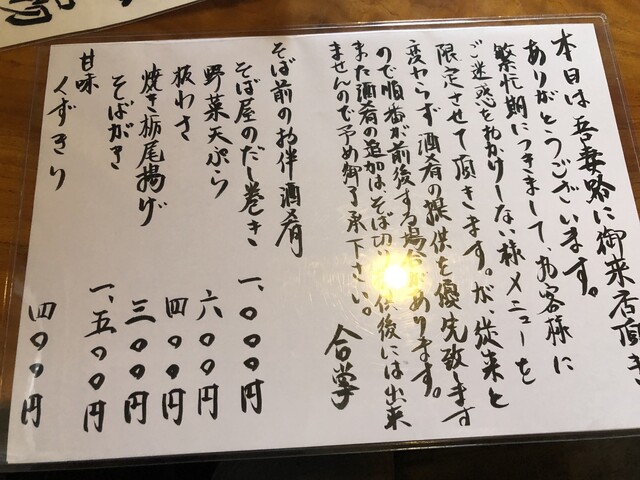 本日は吾妻路に御来店頂き
ありがとうございます。
繁忙期につきまして、お客様に
ご迷惑をおかけしない様メニューを
限定させて頂きます。が、従来と
変わらず酒肴の提供を優先致します
ので順番が前後する場合があります。
また酒肴の追加はそば切り 供後には出来
ませんので予め御了承下さい。 合掌
そば前のお伴酒肴
そば屋のだし巻き 一、〇〇〇円
野菜天ぷら 六〇〇円
板わさ 四〇〇円
焼き栃尾揚げ 三〇〇円
そばがき 一、五〇〇円
甘味
くずきり 四〇〇円